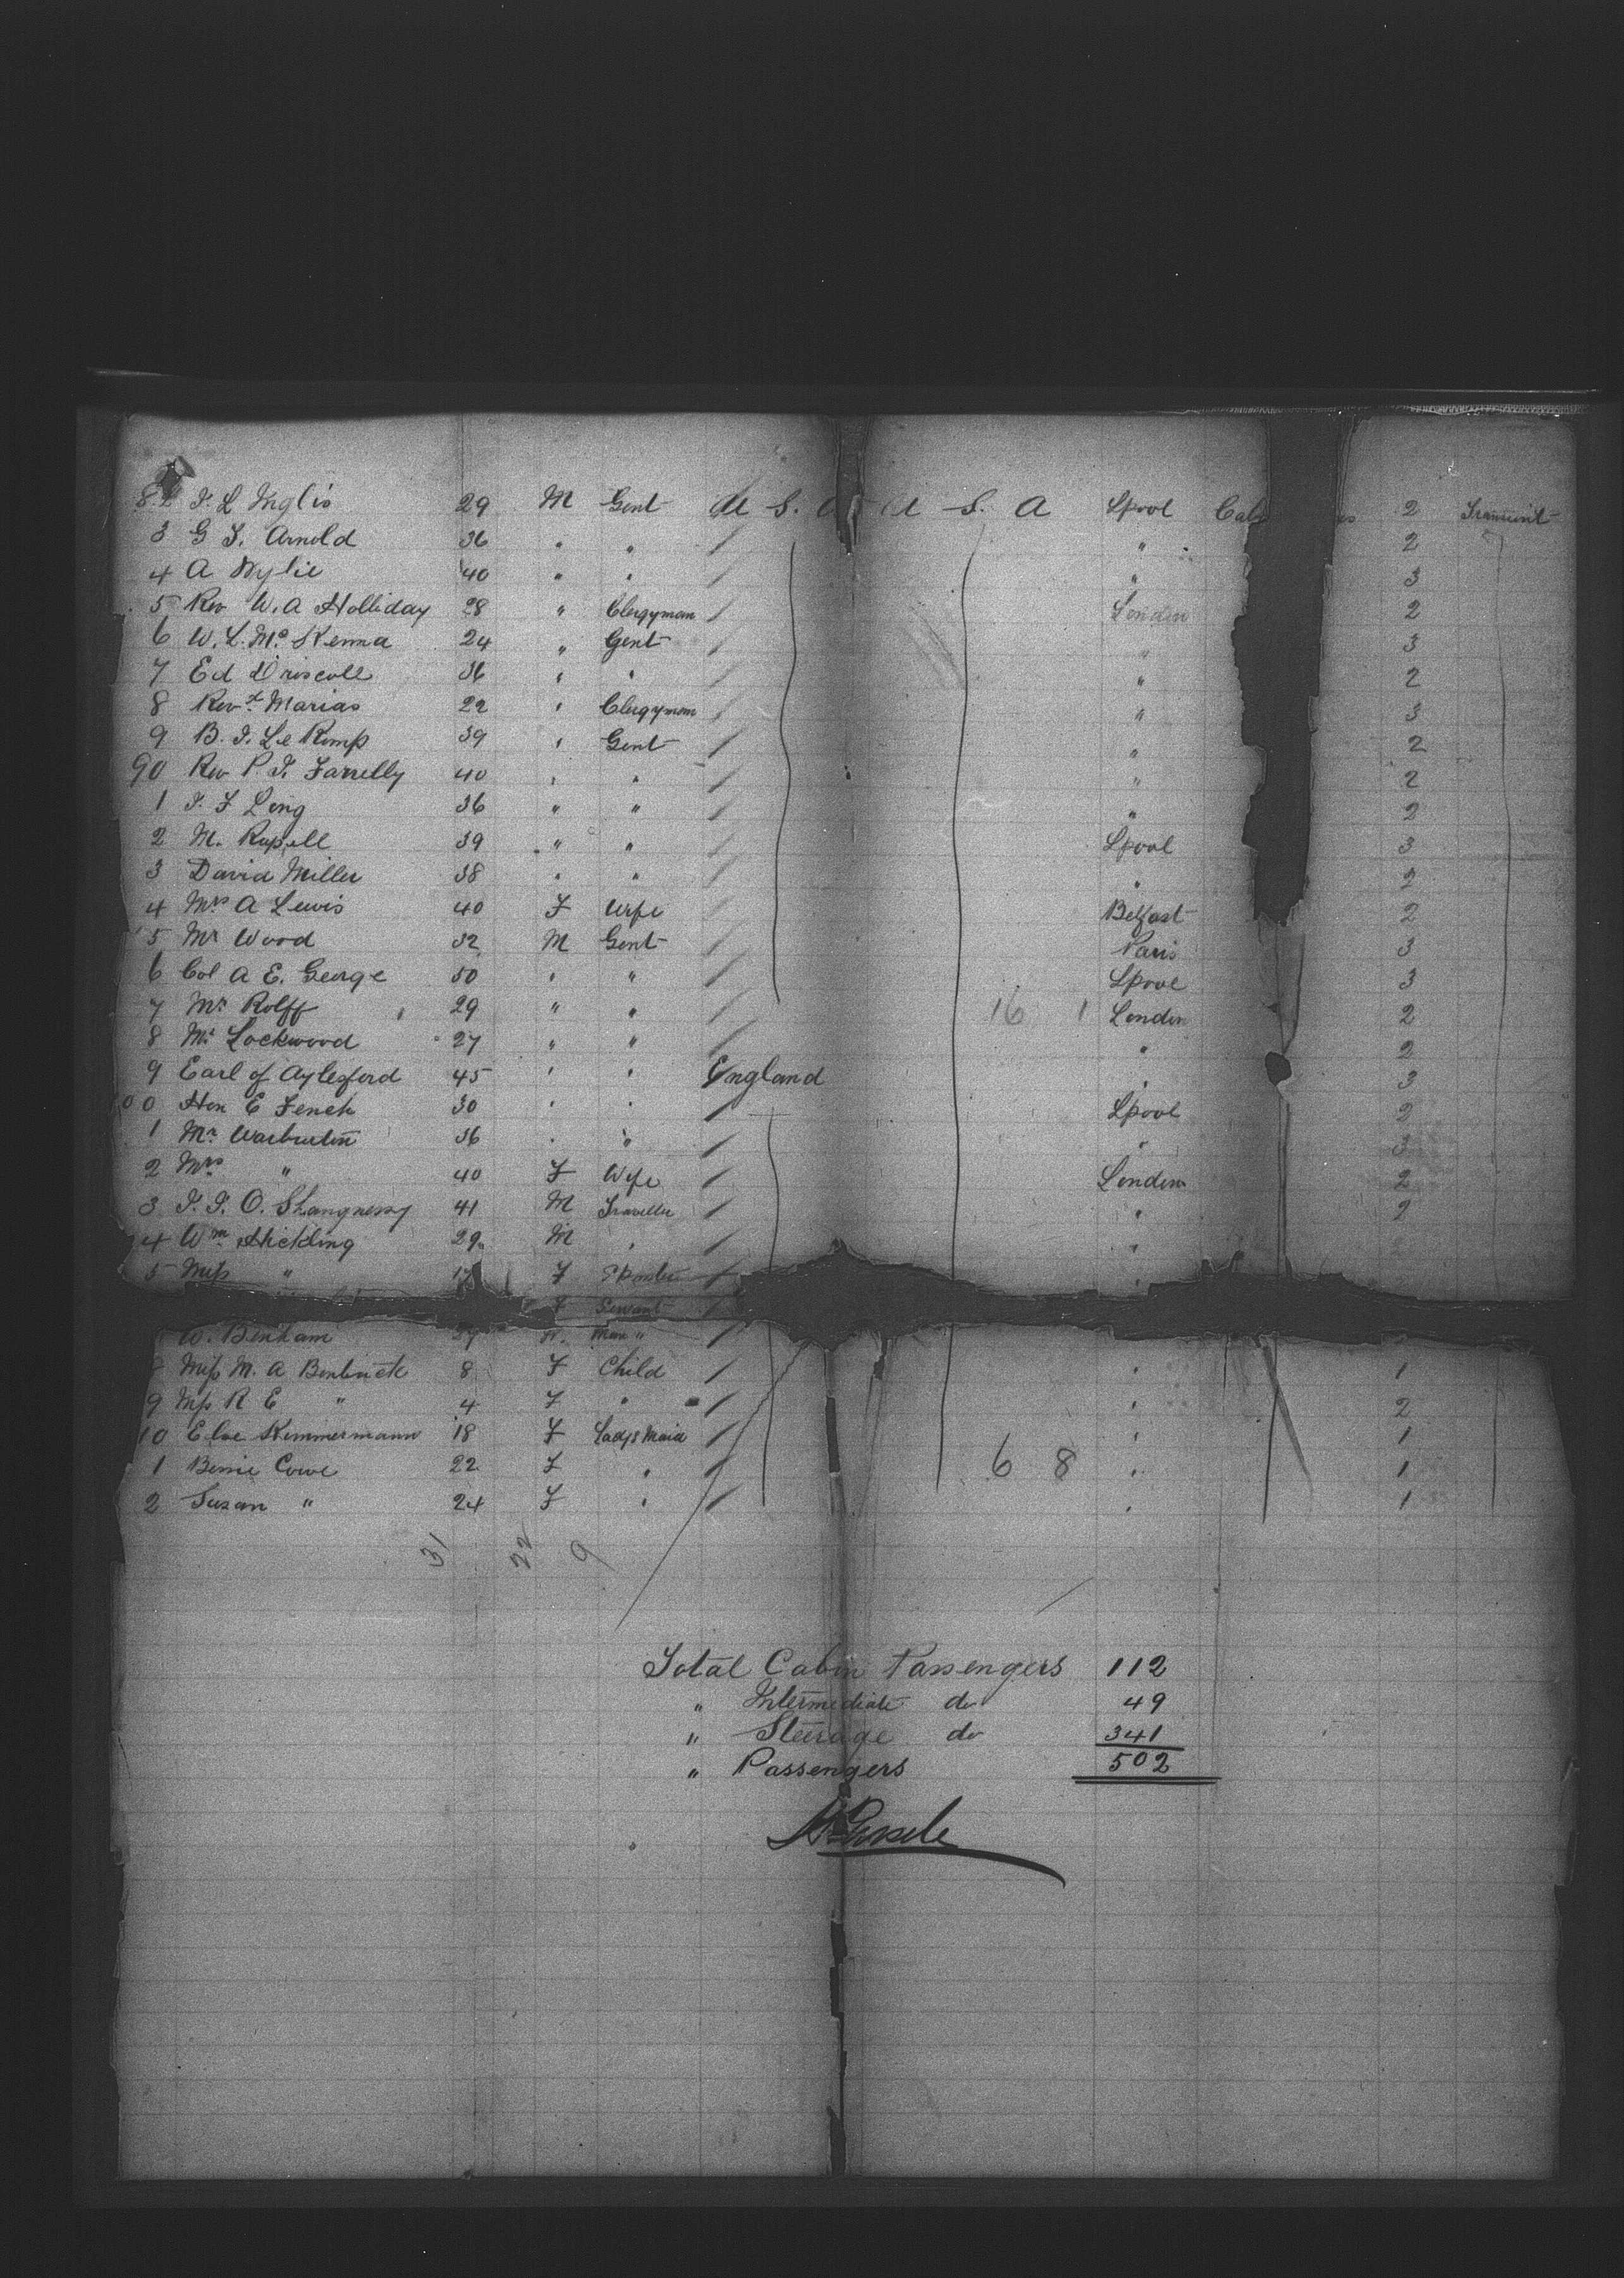 82 J. L Inglis 29 M Gent U S. A U S. A Lpool Cab 2 Transient
3 G T. Arnold 36 " " / " 2
4 A Wylie 40 " " / " 3
5 Rev W. A Holliday 28 " Clergyman / London 2
6 W. L. Mc Kenna 24 " Gent / " 3
7 Ed Driscoll 36 " " / " 2
8 Revd Marias 22 " Clergyman / " 3
9 B. J. Le Romp 39 " Gent / " 2
90 Rev P. J. Farrelly 40 " " / " 2
1 J. F Long 36 " " / " 2
2 M. Russell 39 " " / Lpool 3
3 David Miller 38 " " / "
4 Mrs A Lewis 40 F Wife / Belfast 2
5 Mr Wood 32 M Gent / Paris 3
6 Col A E. George 50 " " / Lpool 3
7 Mr Rolff 29 " " / 16 1 London 2
8 Mr Lockwood 27 " " / " 2
9 Earl of Aylesford 45 " " England " 3
00 Hon E Fench 30 " " / Lpool 2
1 Mr Warburton 36 " " / " 3
2 Mrs " 40 F Wife / London 2
3 J. J. O. Shangnessy 41 M Traveller / " 2
4 Wm Hickling 29 M " / "
5 Miss " F / "
F Servant /
W. Benham 27 Man " /
Miss M. A Bentinck 8 F Child / " 1
9 Miss R E " 4 F " / " 2
10 Elve Kemmermann 18 F Ladys Maid / " 1
1 Bessie Cowe 22 F " / 6 8 " 1
2 Susan " 24 F " / " 1
31 22 9
Total Cabin Passengers 112
" Intermediate do 49
" Steerage do 341
" Passengers 502